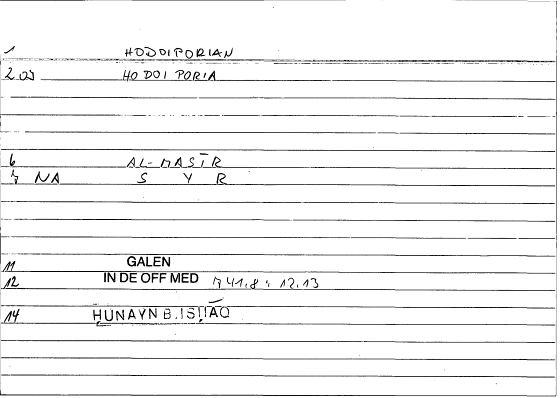 1 HODOIPORIAN
2.03 HODOIPORIA
6 AL-MASĪR
7 NA S Y R
11 GALEN
12 IN DE OFF MED 741.8 : 12.13
14 ḤUNAYN B.ISḤĀQ